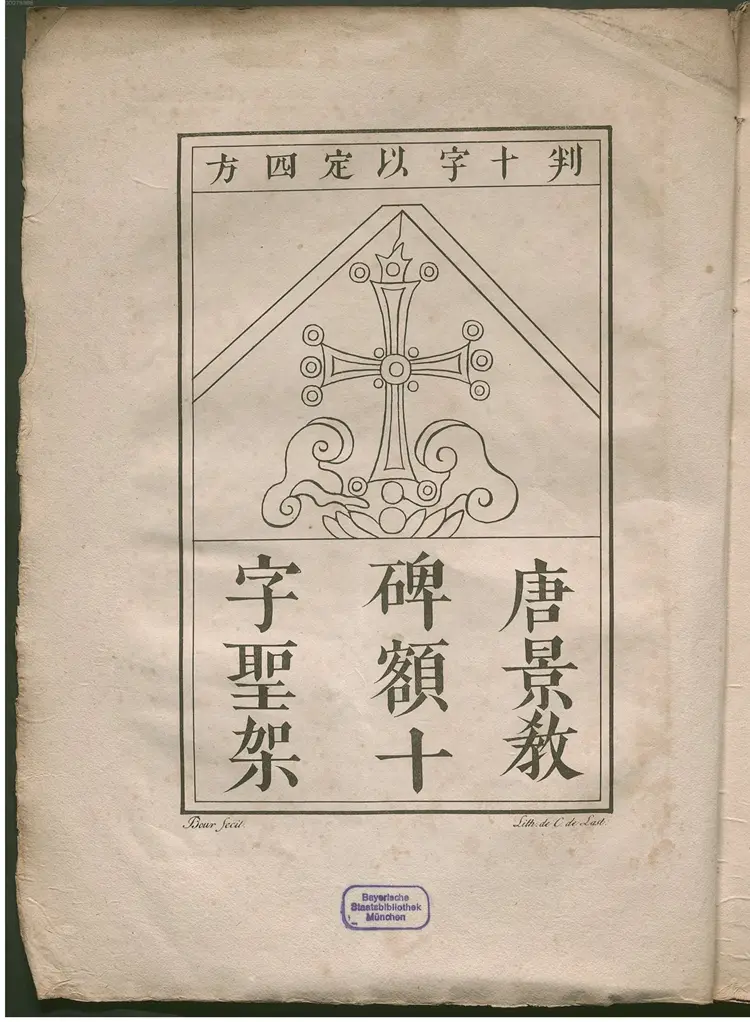 判十字以定四方
唐景教
碑額十
字聖架
Bour fecit.
Lith: de C. de Last.
Bayerische
Staatsbibliothek
München